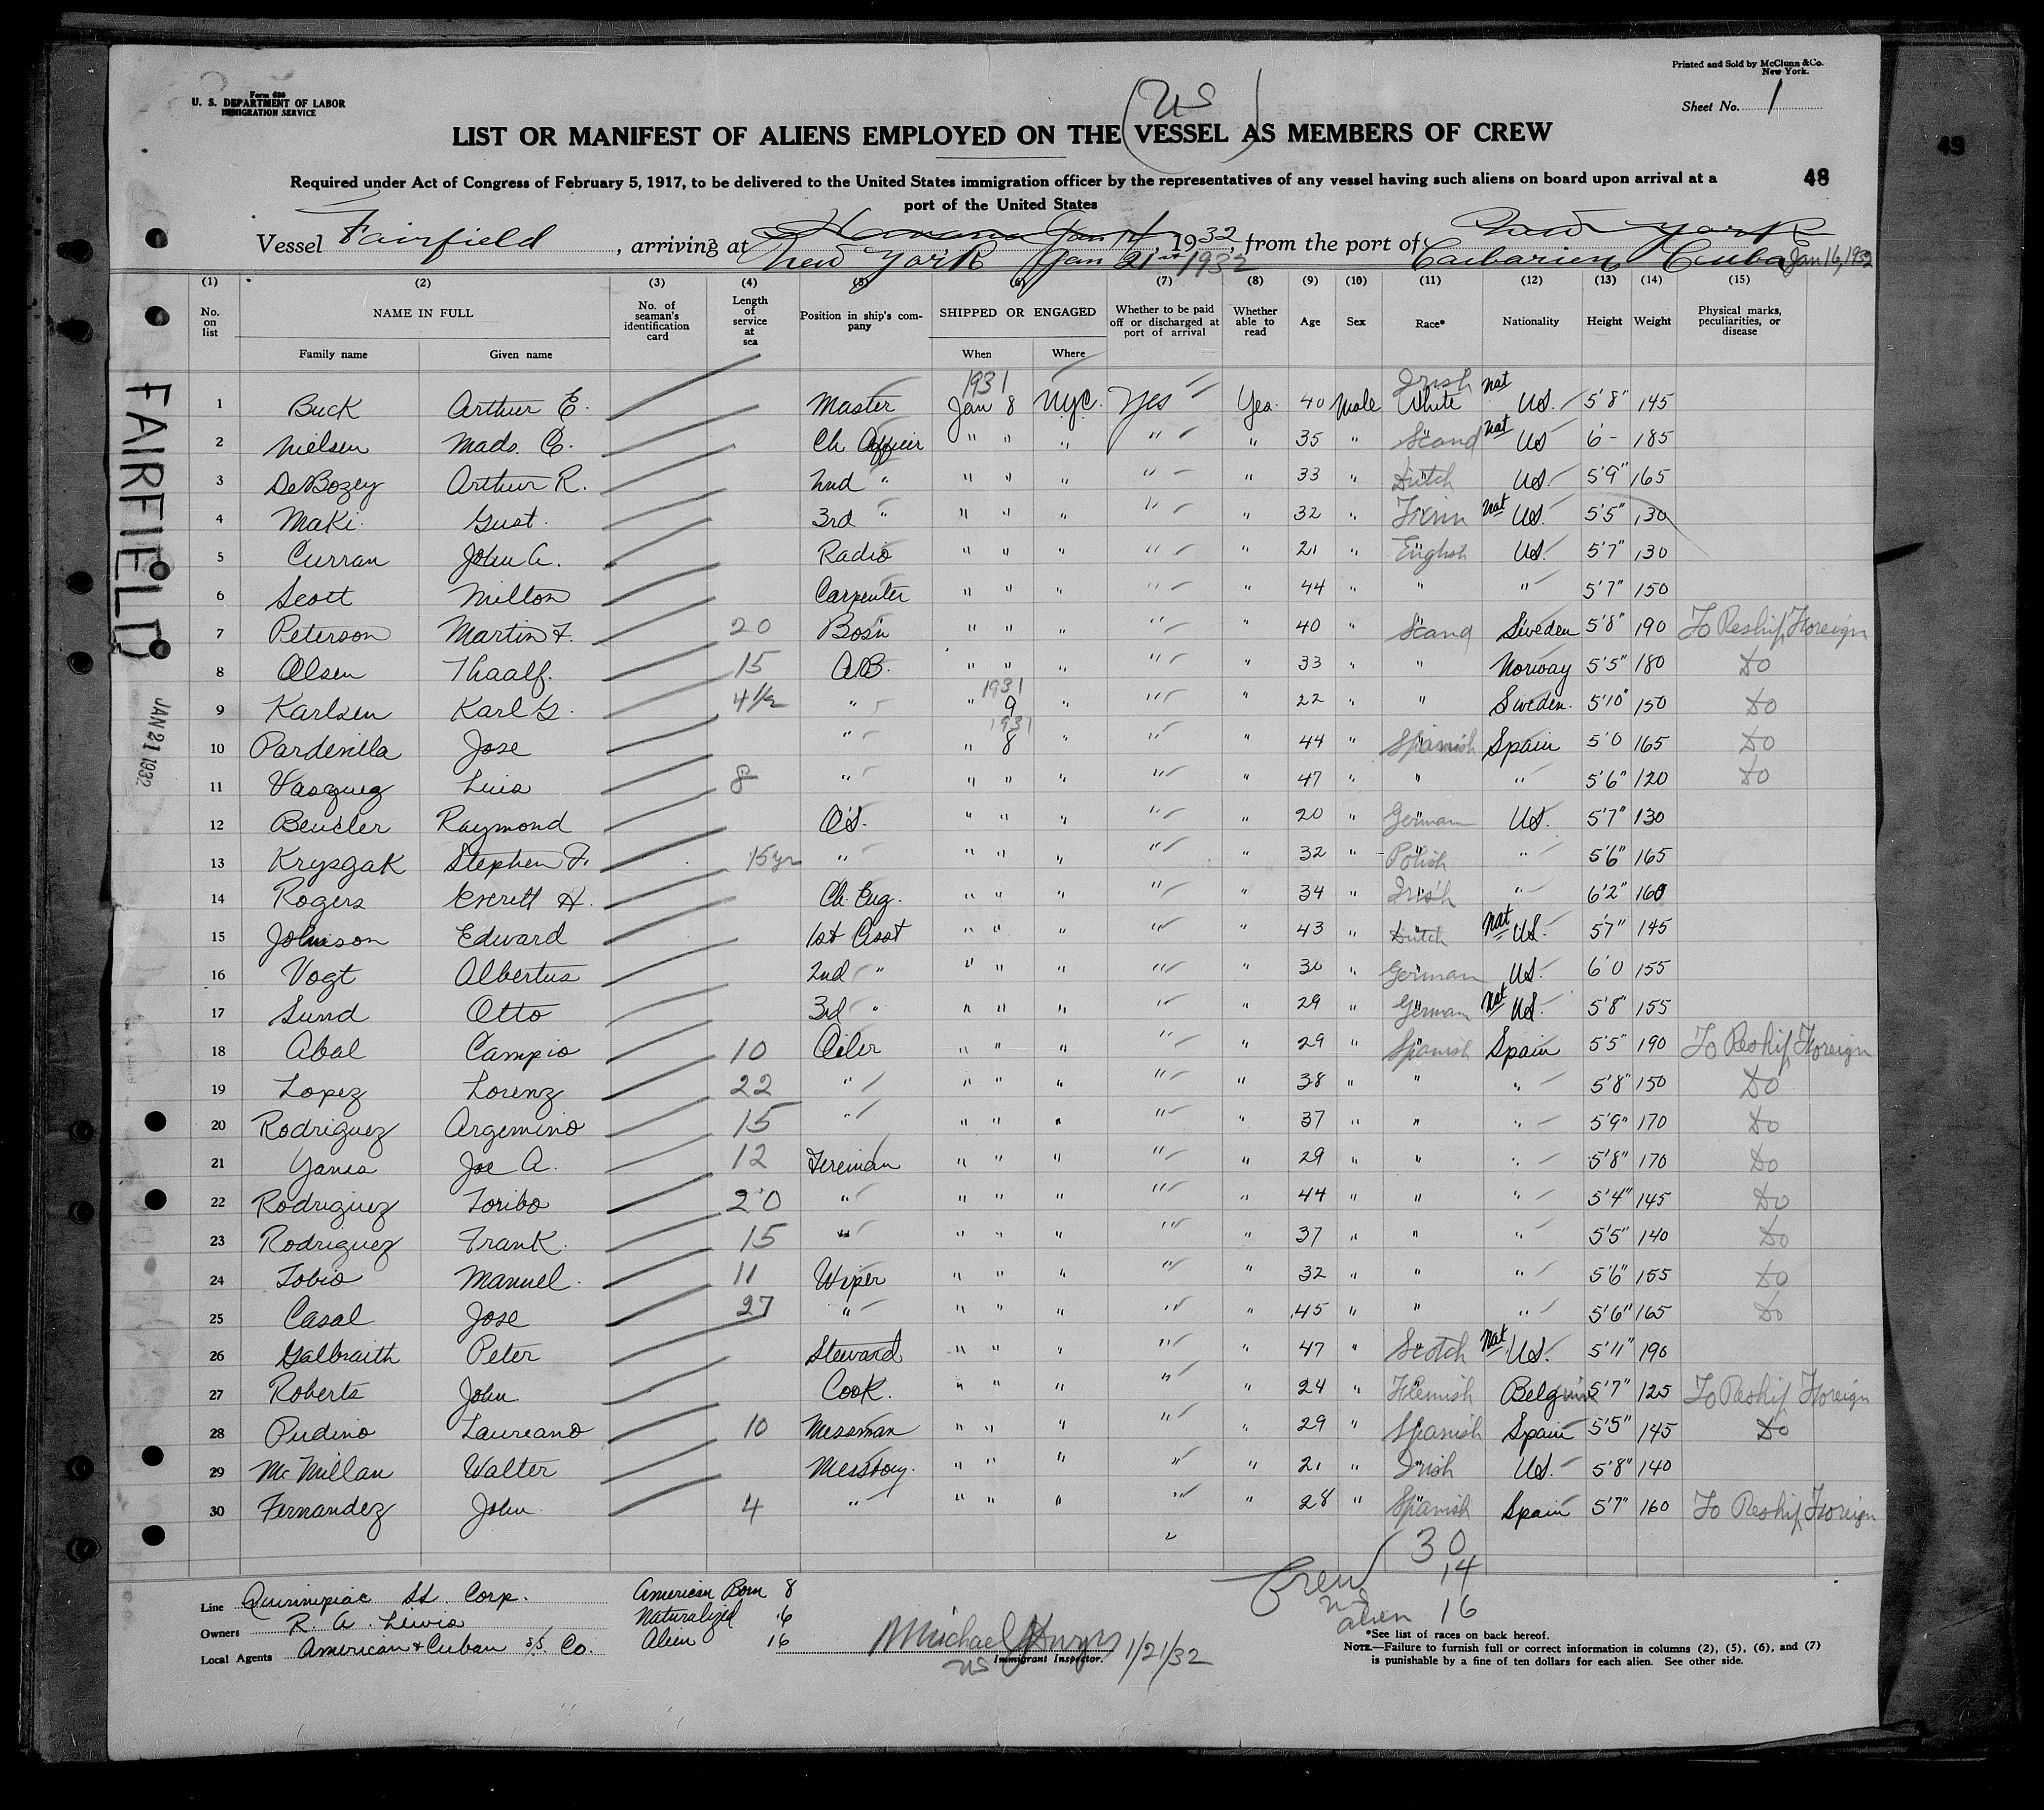 Form 680
U. S. DEPARTMENT OF LABOR
IMMIGRATION SERVICE
Printed and Sold by McClunn & Co.
New York.
Sheet No. 1
LIST OR MANIFEST OF ALIENS EMPLOYED ON THE VESSEL AS MEMBERS OF CREW
Required under Act of Congress of February 5, 1917, to be delivered to the United States immigration officer by the representatives of any vessel having such aliens on board upon arrival at a
port of the United States
48
49
Vessel Fairfield, arriving at Havana Jan 14, 1932, from the port of New York
New York Jan 21st 1932 Caibarien Cuba Jan 16, 1932
(1) (2) (3) (4) (5) (6) (7) (8) (9) (10) (11) (12) (13) (14) (15)
No. on list NAME IN FULL Family name Given name No. of seaman's identification card Length of service at sea Position in ship's company SHIPPED OR ENGAGED When Where Whether to be paid off or discharged at port of arrival Whether able to read Age Sex Race* Nationality Height Weight Physical marks, peculiarities, or disease
1 Buck Arthur E. Master 1931 Jan 8 NYC. Yes Yes 40 Male Irish White nat US. 5'8" 145
2 Nielsen Mads. C. Ch Officer " " " " " 35 " Scand nat US 6'- 185
3 DeBozey Arthur R. 2nd " " " " " " 33 " Dutch US. 5'9" 165
4 Maki Gust. 3rd " " " " " " 32 " Finn nat US. 5'5" 130
5 Curran John A. Radio " " " " " 21 " English US. 5'7" 130
6 Scott Milton Carpenter " " " " " 44 " " " 5'7" 150
7 Peterson Martin F. 20 Bos'n " " " " " 40 " Scand Sweden 5'8" 190 To Reship Foreign
8 Olsen Thaalf. 15 A.B. " " " " " 33 " " Norway 5'5" 180 Do
9 Karlsen Karl G. 4 1/2 " " 1931 9 " " " 22 " " Sweden. 5'10" 150 Do
10 Pardevilla Jose " " 1931 8 " " " 44 " Spanish Spain 5'0 165 Do
11 Vasquez Luis 8 " " " " " " 47 " " " 5'6" 120 Do
12 Beucler Raymond O.S. " " " " " 20 " German US. 5'7" 130
13 Krysgak Stephen F. 15 yr " " " " " " 32 " Polish " 5'6" 165
14 Rogers Everett H. Ch. Eng. " " " " " 34 " Irish " 6'2" 160
15 Johnson Edward 1st Asst " " " " " 43 " Dutch Nat US. 5'7" 145
16 Vogt Albertus 2nd " " " " " " 30 " German US. 6'0 155
17 Sund Otto 3rd " " " " " " 29 " German Nat US. 5'8" 155
18 Abal Campio 10 Oiler " " " " " 29 " Spanish Spain 5'5" 190 To Reship Foreign
19 Lopez Lorenz 22 " " " " " " 38 " " " 5'8" 150 Do
20 Rodriguez Argemino 15 " " " " " " 37 " " " 5'9" 170 Do
21 Yanes Joe A. 12 Fireman " " " " " 29 " " " 5'8" 170 Do
22 Rodriguez Toribo 20 " " " " " " 44 " " " 5'4" 145 Do
23 Rodriguez Frank 15 " " " " " " 37 " " " 5'5" 140 Do
24 Tobio Manuel. 11 Wiper " " " " " 32 " " " 5'6" 155 Do
25 Casal Jose 27 " " " " " " 45 " " " 5'6" 165 Do
26 Galbraith Peter Steward " " " " " 47 " Scotch Nat US. 5'11" 190
27 Roberts John Cook. " " " " " 24 " Flemish Belgium 5'7" 125 To Reship Foreign
28 Pudino Laureano 10 Messman " " " " " 29 " Spanish Spain 5'5" 145 Do
29 McMillan Walter Messboy. " " " " " 21 " Irish US. 5'8" 140
30 Fernandez John 4 " " " " " " 28 " Spanish Spain 5'7" 160 To Reship Foreign
Crew 30
14
alien 16
Line Quinnipiac SS. Corp.
Owners R. A.
Local Agents American & Cuban S/S. Co.
American Born 8
Naturalized 6
Alien 16
Michael
Immigrant Inspector. 1/21/32
*See list of races on back hereof.
NOTE.—Failure to furnish full or correct information in columns (2), (5), (6), and (7)
is punishable by a fine of ten dollars for each alien. See other side.
FAIRFIELD
JAN 21 1932